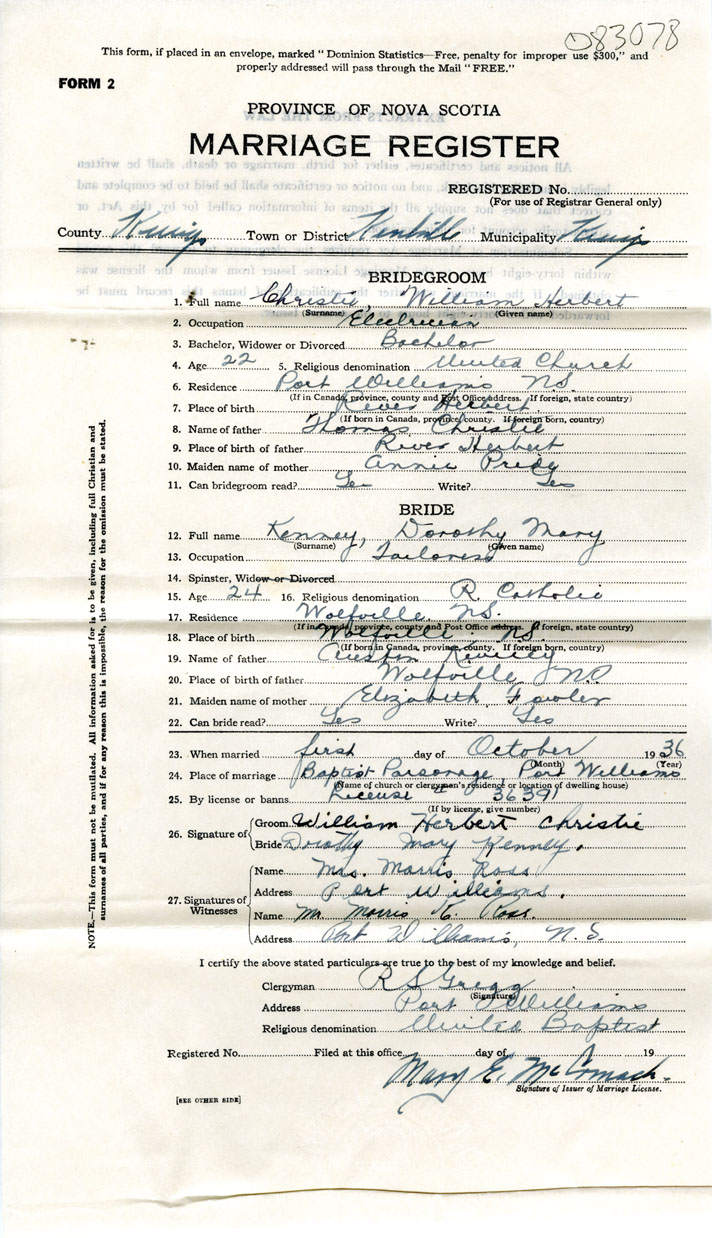 083078
This form, if placed in an envelope, marked " Dominion Statistics—Free, penalty for improper use $300," and
properly addressed will pass through the Mail "FREE."
FORM 2
PROVINCE OF NOVA SCOTIA
MARRIAGE REGISTER
REGISTERED No.
(For use of Registrar General only)
County Kings Town or District Kentville Municipality Kings
BRIDEGROOM
1. Full name Christie, William Herbert
(Surname) (Given name)
2. Occupation Electrician
3. Bachelor, Widower or Divorced Bachelor
4. Age 22 5. Religious denomination United Church
6. Residence Port Williams NS
(If in Canada, province, county and Post Office address. If foreign, state country)
7. Place of birth River Herbert
(If born in Canada, province, county. If foreign born, country)
8. Name of father Thomas Christie
9. Place of birth of father River Herbert
10. Maiden name of mother Annie Predy
11. Can bridegroom read? Yes Write? Yes
BRIDE
12. Full name Kenney, Dorothy Mary
(Surname) (Given name)
13. Occupation Tailoress
14. Spinster, Widow or Divorced
15. Age 24 16. Religious denomination R. Catholic
17. Residence Wolfville, NS.
(If in Canada, province, county and Post Office address. If foreign, state country)
18. Place of birth Wolfville NS.
(If born in Canada, province, county. If foreign born, country)
19. Name of father Austin Kenney
20. Place of birth of father Wolfville, NS
21. Maiden name of mother Elizabeth Fowler
22. Can bride read? Yes Write? Yes
23. When married first day of October 1936
(Month) (Year)
24. Place of marriage Baptist Parsonage, Port Williams
(Name of church or clergyman's residence or location of dwelling house)
25. By license or banns License # 36391
(If by license, give number)
26. Signature of
Groom William Herbert Christie
Bride Dorothy Mary Kenney.
27. Signatures of Witnesses
Name Mrs. Morris Ross
Address Port Williams.
Name Mr. Morris K. Ross.
Address Port Williams, N.S.
I certify the above stated particulars are true to the best of my knowledge and belief.
Clergyman R S Gregg
(Signature)
Address Port Williams
Religious denomination United Baptist
Registered No. Filed at this office day of 19
Mary E. McCormack.
Signature of Issuer of Marriage License.
[SEE OTHER SIDE]
NOTE.—This form must not be mutilated. All information asked for is to be given, including full Christian and
surnames of all parties, and if for any reason this is impossible, the reason for the omission must be stated.